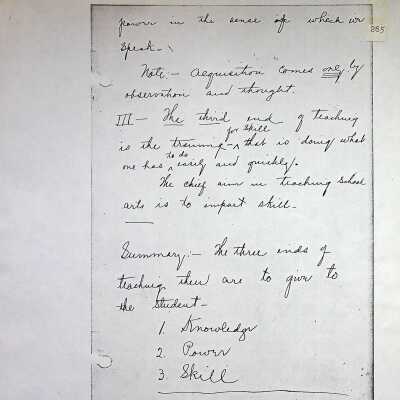 power in the sense of which we
285
speak.
Note:- Acquisition comes only by
observation and thought.
III - The third end of teaching
for skill
is the training - ^ that is doing what
to do
one has ^ easily and quickly.
The chief aim in teaching school
arts is to impart skill.
Summary:- The three ends of
teaching then are to give to
the student -
1. Knowledge
2. Power
3. Skill